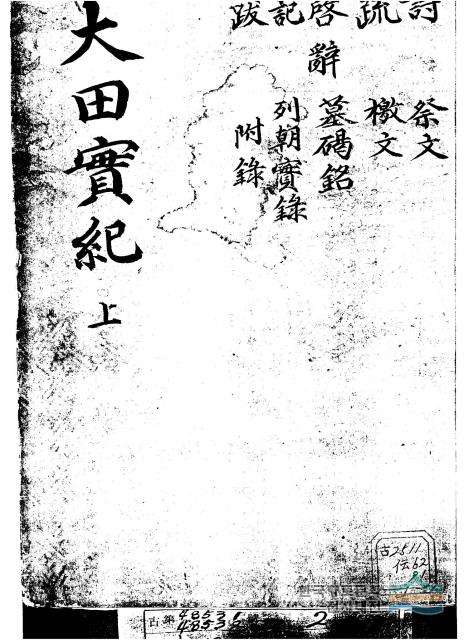 詩 祭文
疏 檄文
啓辭 墓碣銘
記 列朝實錄
跋 附錄
大田實紀 上
古2511
伝62
2